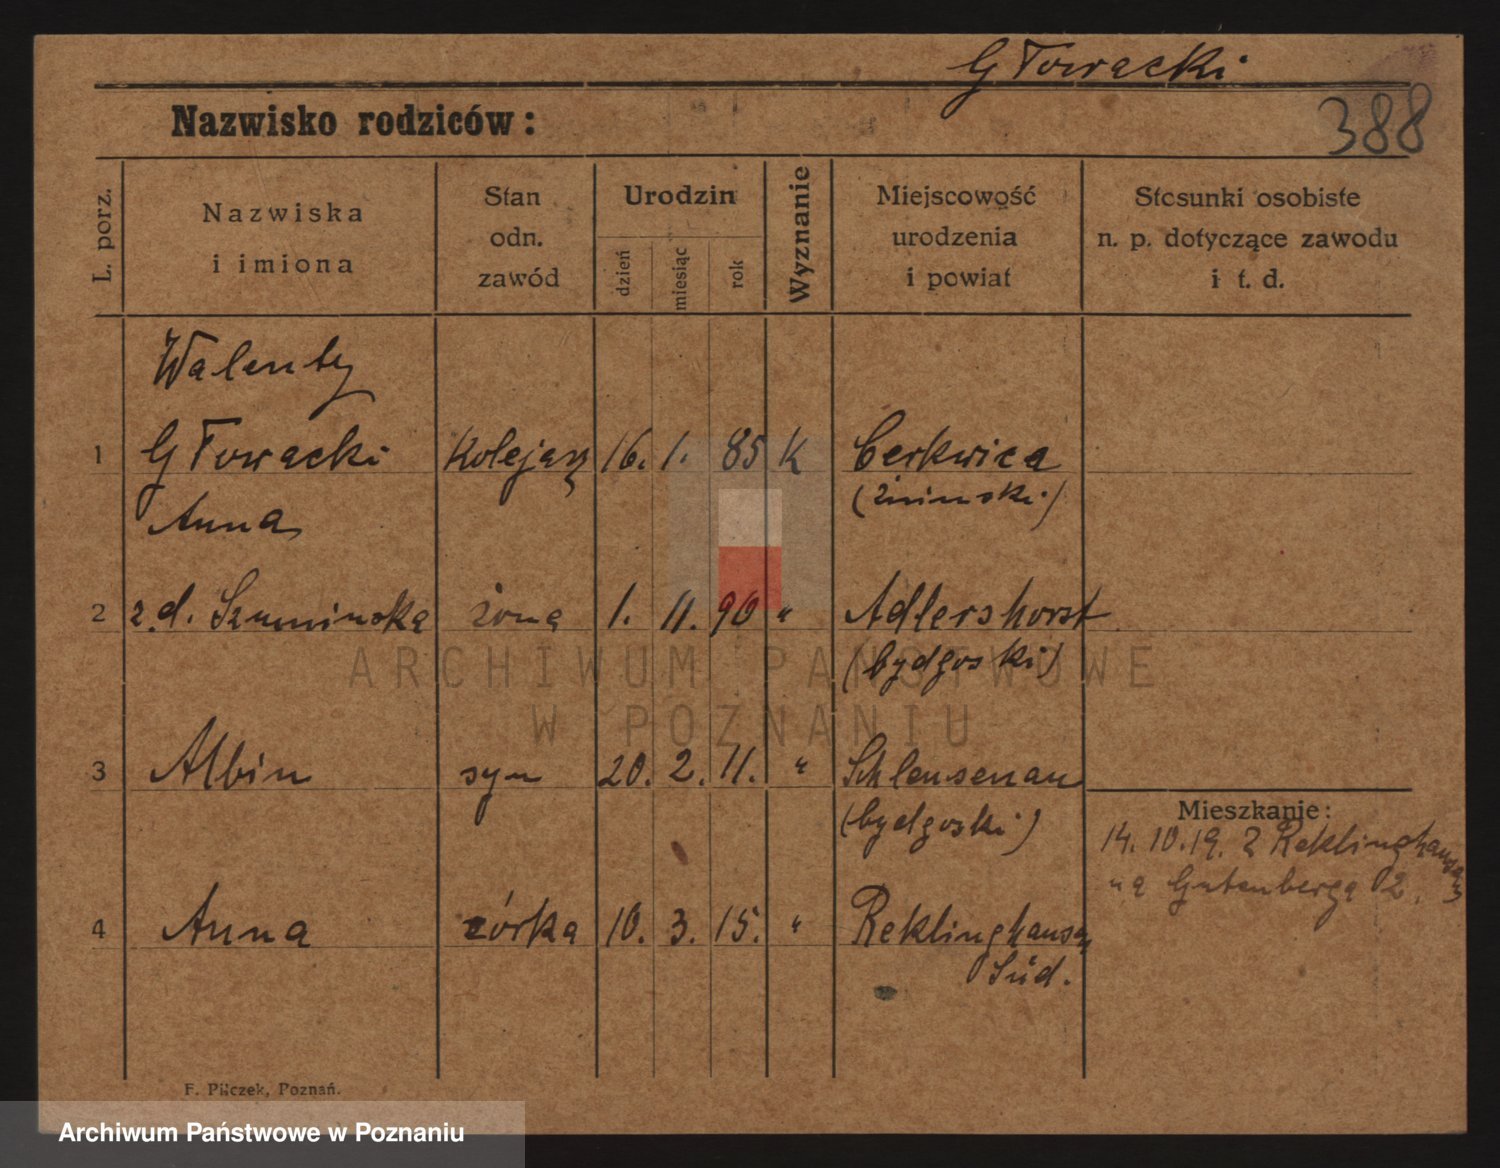 Głowacki
388
Nazwisko rodziców:
L. porz.
Nazwiska
i imiona
Stan
odn.
zawód
Urodzin
dzień
miesiąc
rok
Wyznanie
Miejscowość
urodzenia
i powiat
Stosunki osobiste
n. p. dotyczące zawodu
i t. d.
Walenty
1 Głowacki kolejarz 16. 1. 85 K Cerkwica
(żniński)
Anna
2 z.d. Szumińska żona 1. 11. 90 " Adlershorst
(bydgoski)
3 Albin syn 20. 2. 11. " Schleusenau
(bydgoski)
Mieszkanie:
14. 10. 19. z Reklinghausen
na Gutenberga 2.
4 Anna córka 10. 3. 15. " Reklinghausen
Süd.
F. Pilczek, Poznań.
ARCHIWUM PAŃSTWOWE
W POZNANIU
Archiwum Państwowe w Poznaniu